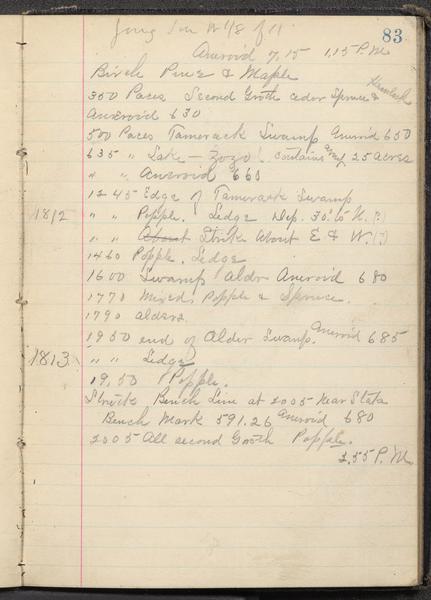 83
Aneroid 7,15 1,15 P.M.
Birch Pine & Maple
Hemlock
350 Paces Second Groth cedar Spruce &
Aneroid 630
500 Paces Tamerack Swamp Aneroid 650
635 " Lake — contains about 25 acres
" " Aneroid 660
1245 Edge of Tamerack Swamp
1812 " " Popple. Ledge Dip. 30° to N. (?)
" " About Strike About E & W. (?)
1460 Popple. Ledge
1600 Swamp Aldr Aneroid 680
1770 Mixed, Popple & Spruce.
1790 alders
1950 end of Alder Swamp. Aneroid 685
1813 " " Ledge
19,50 Popple.
Struck Bench Line at 2005 Near Stake
Bench Mark 591.26 Aneroid 680
2005 All second Groth Popple.
2,55 P.M.